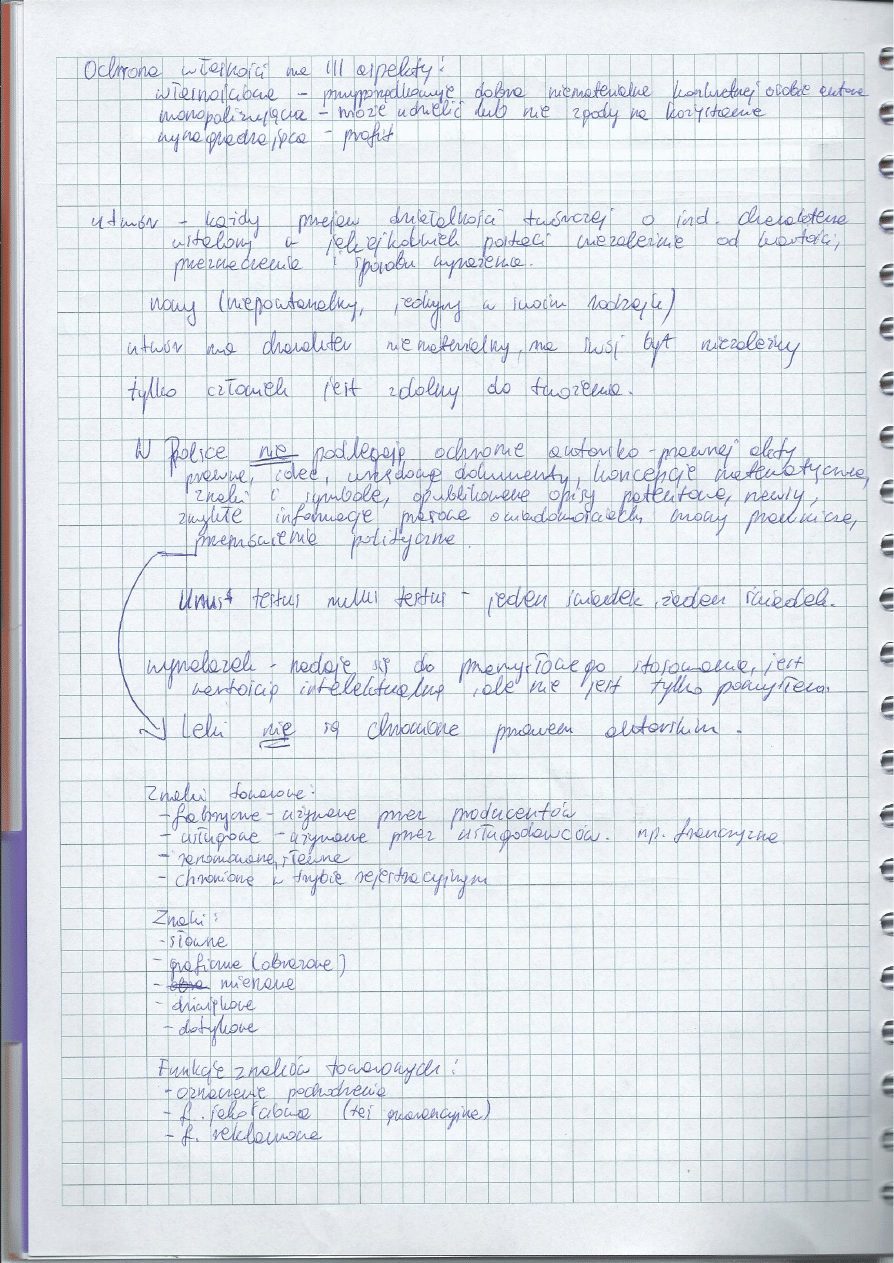 Ochrona własności ma III aspekty:
własnościowa – przyporządkowuje dobra niematerialne konkretnej osobie autora
monopolizująca – może udzielić lub nie zgody na korzystanie
wynagradzająca – profit
utwór – każdy przejaw działalności twórczej o ind. charakterze
ustalony w jakiejkolwiek postaci niezależnie od wartości,
przeznaczenia i sposobu wyrażenia.
nowy (niepowtarzalny, jedyny w swoim rodzaju)
utwór ma charakter niematerialny, ma swój byt niezależny
tylko człowiek jest zdolny do tworzenia.
W Polsce nie podlegają ochronie autorsko-prawnej akty
prawne, idee, urzędowe dokumenty, koncepcje matematyczne,
znaki i symbole, opublikowane opisy patentowe, newsy,
zwykłe informacje prasowe o wiadomościach, mowy prawnicze,
przemówienia polityczne.
Unus testus nullus testus – jeden świadek, żaden świadek.
wynalazek – nadaje się do przemysłowego stosowania, jest
wartością intelektualną, ale nie jest tylko pomysłem.
Leki nie są chronione prawem autorskim.
Znaki towarowe:
- fabryczne – używane przez producentów
- usługowe – używane przez usługodawców. np. franczyzna
- renomowane, sławne
- chronione w trybie rejestracyjnym
Znaki:
- słowne
- graficzne (obrazowe)
- mieszane
- dźwiękowe
- dotykowe
Funkcje znaków towarowych:
- oznaczenie pochodzenia
- f. jakościowa (też gwarancyjna)
- f. reklamowa